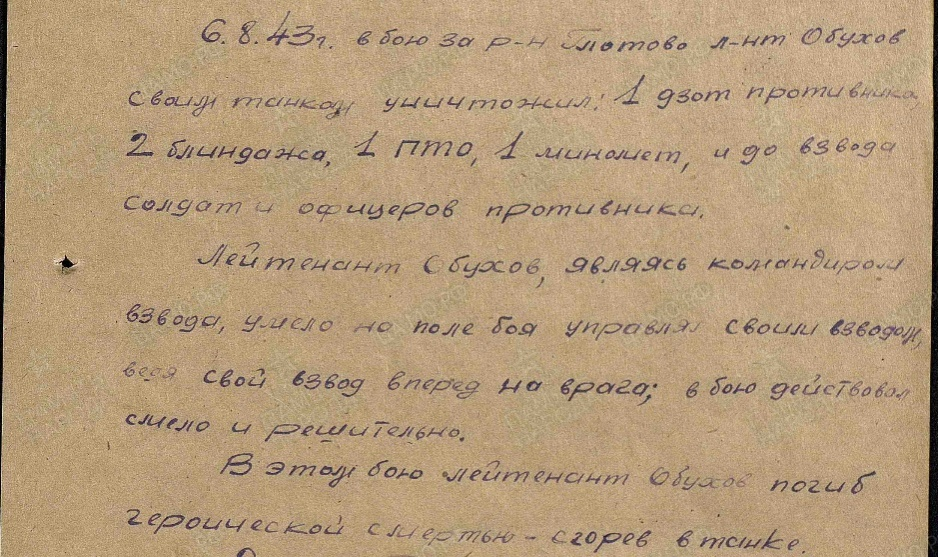 6.8.43г. в бою за р-н Глотово л-нт Обухов
своим танком уничтожил: 1 дзот противника,
2 блиндажа, 1 ПТО, 1 миномет, и до взвода
солдат и офицеров противника.
Лейтенант Обухов, являясь командиром
взвода, умело на поле боя управлял своим взводом,
ведя свой взвод вперед на врага; в бою действовал
смело и решительно.
В этом бою лейтенант Обухов погиб
героической смертью - сгорев в танке.